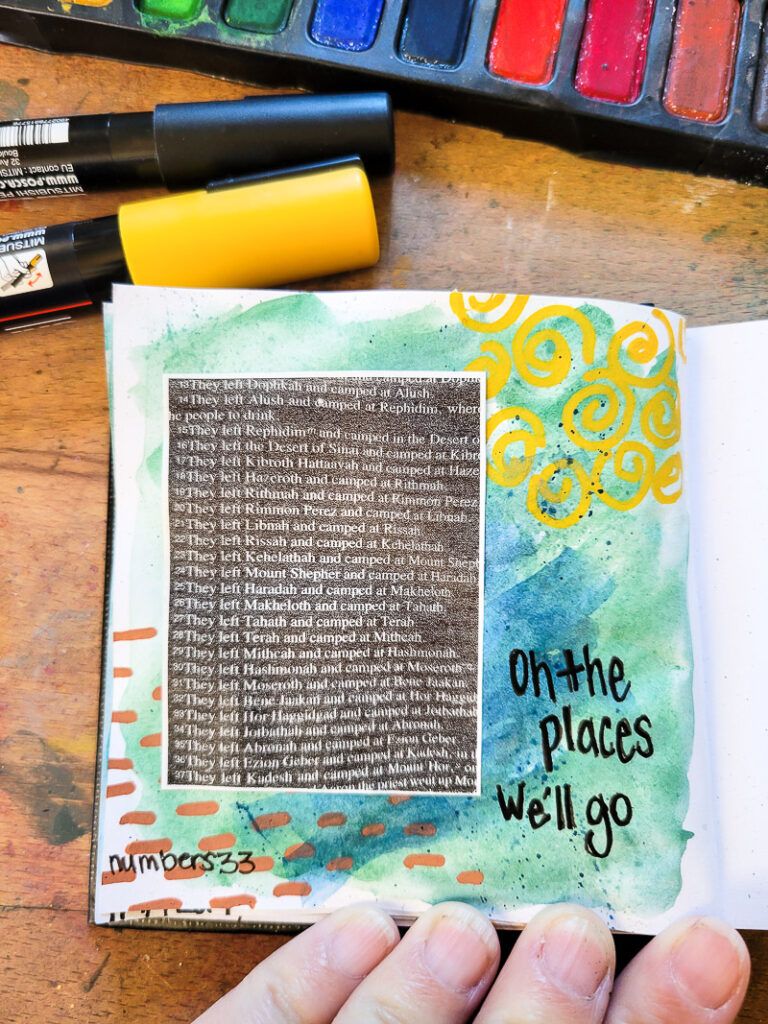 32 Av
Boulo
EU contact : MITSU
www.POSCA.C
MITSUBISHI PE
MITSUB
www.po
camped at Doph
13They left Dophkah and camped at Alush.
14They left Alush and camped at Rephidim, where
he people to drink
15They left Rephidim and camped in the Desert o
16They left the Desert of Sinai and camped at Kibro
17They left Kibroth Hattaavah and camped at Haze
18They left Hazeroth and camped at Rithmah.
19They left Rithmah and camped at Rimmon Perez
20They left Rimmon Perez and camped at Libnah.
21They left Libnah and camped at Rissah.
22They left Rissah and camped at Kehelathah.
23They left Kehelathah and camped at Mount Sheph
24They left Mount Shepher and camped at Haradah
25They left Haradah and camped at Makheloth.
26They left Makheloth and camped at Tahath.
27They left Tahath and camped at Terah.
28They left Terah and camped at Mithcah.
29They left Mithcah and camped at Hashmonah.
30They left Hashmonah and camped at Moseroth
31They left Moseroth and camped at Bene Jaakan.
They left Bene Jaakan and camped at Hor Haggid
33They left Hor Haggidgad and camped at Jotbathah
34They left Jotbathah and camped at Abronah.
35They left Abronah and camped at Ezion Geber.
36They left Ezion Geber and camped at Kadesh, in t
37They left Kadesh and camped at Mount Hor, on
Aaron the priest went up Mo
Oh the
places
We'll go
numbers 33